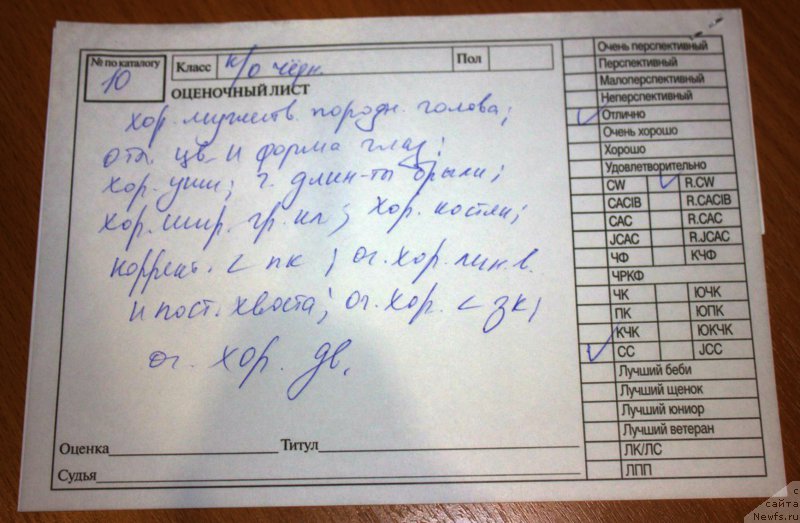 № по каталогу
10
Класс к/о чёрн.
Пол
ОЦЕНОЧНЫЙ ЛИСТ
хор. мужеств. породн. голова;
отл. цв. и форма глаз;
хор. уши; г. длин-ты брыли;
хор. шир. гр. кл; хор. костяк;
коррект. < пк; оч. хор. лин. в.
и пост. хвоста; оч. хор. < зк;
оч. хор. дв.
Оценка
Титул
Судья
Очень перспективный
Перспективный
Малоперспективный
Неперспективный
Отлично
Очень хорошо
Хорошо
Удовлетворительно
CW R.CW
CACIB R.CACIB
CAC R.CAC
JCAC R.JCAC
ЧФ КЧФ
ЧРКФ
ЧК ЮЧК
ПК ЮПК
КЧК ЮКЧК
СС JCC
Лучший беби
Лучший щенок
Лучший юниор
Лучший ветеран
ЛК/ЛС
ЛПП
с
сайта
Newfs.ru